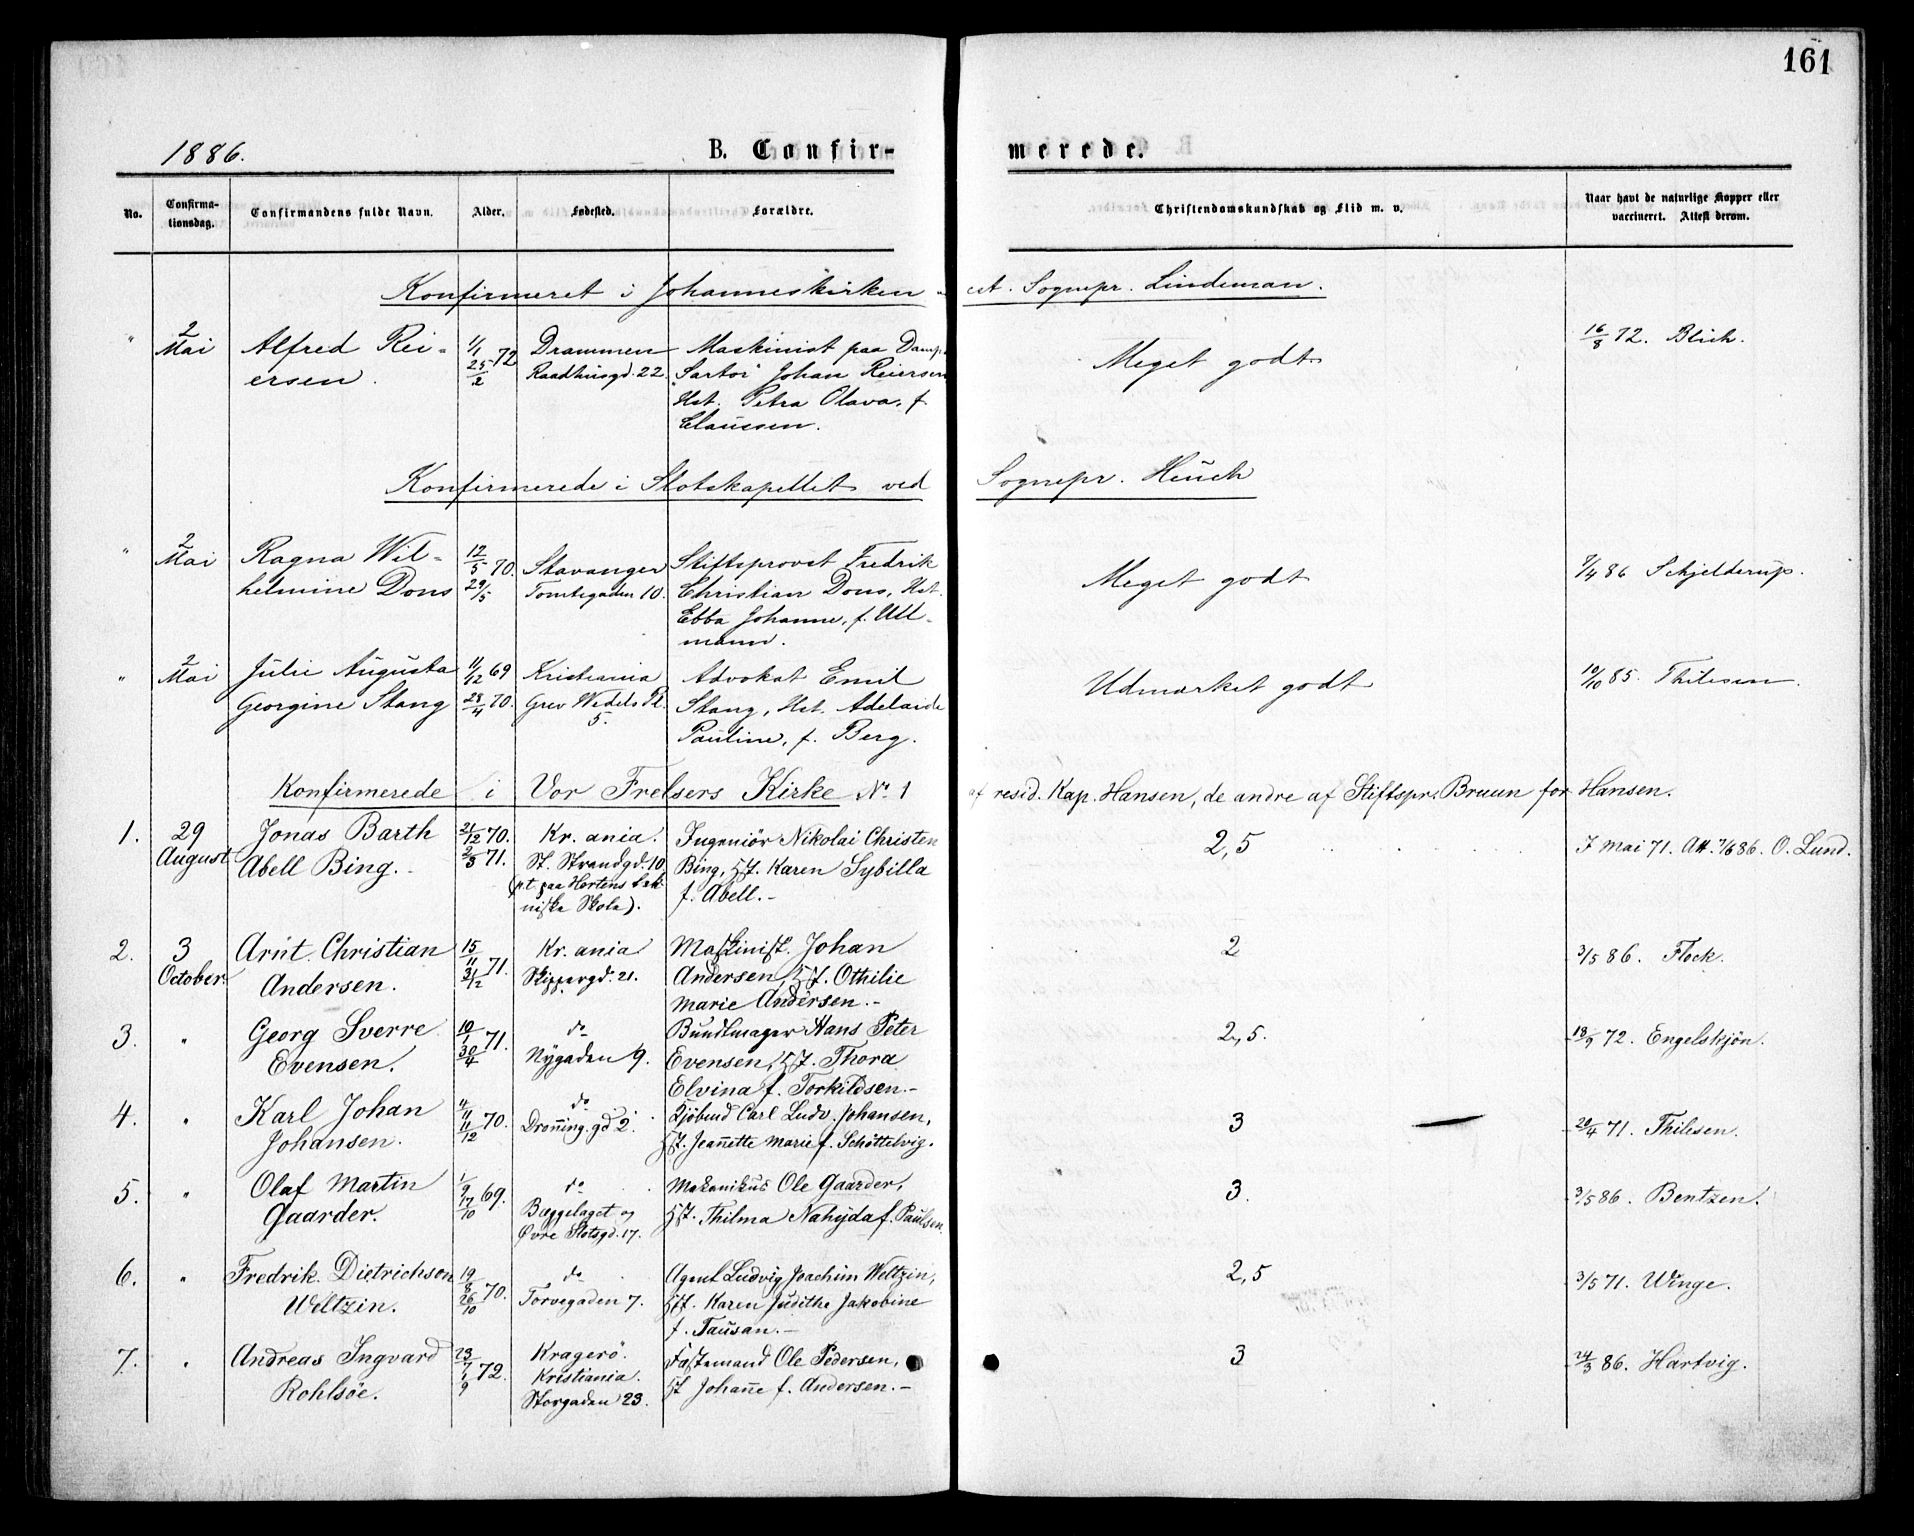 161
1886. B. Confir- merede.
No. Confirma-tionsdag. Confirmandens fulde Navn. Alder. Fødested. Forældre. Christendomskundskab og Flid m. v. Naar havt de naturlige Kopper eller vaccineret. Attest derom.
Konfirmeret i Johanneskirken Sognepr. Lindeman.
" 2 Mai Alfred Rei- 1/1 72 Drammen Maskinist paa Damp. Meget godt 16/8 72. Blich.
ersen. 25/2 Raadhusgd. 22. "Sartor" Johan Reiersen
Hst. Petra Olava, f.
Claussen.
Konfirmerede i Slotskapellet ved Sognepr. Heuch
" 2 Mai Ragna Wil- 12/5 70. Stavanger Stiftsprovst Fredrik Meget godt 7/4 86 Schjelderup.
helmine Dons 29/5 Tomtegaden 10. Christian Dons, Hst.
Ebba Johanne, f. Ull-
mann.
" 2 Mai Julie Augusta 11/12 69 Kristiania Advokat Emil Udmærket godt 10/10 85. Thilesen.
Georgine Stang 28/4 70. Grev Wedels Pl. Stang, Hst. Adelaide
5. Pauline, f. Berg.
Konfirmerede i Vor Frelsers Kirke No. 1 af resid. Kap. Hansen, de andre af Stiftspr. Bruun for Hansen.
1. 29 Jonas Barth 21/12 70. Kr.ania. Ingeniör Nikolai Christen 2,5 7 Mai 71. Att. 7/6 86. O. Lund.
August Abell Bing. 2/3 71. St. Strandgd. 10 Bing, Hst. Karen Sybilla
(p.t. paa Hortens tek- f. Abell.-
niske Skole).
2. 3 Arnt. Christian 15/11 71. Kr.ania Maskinist. Johan 2 3/5 86. Flock.
October. Andersen. 31/12 Skippergd. 21. Andersen, Hst. Othilie
Marie Andersen.-
3. " Georg Sverre 10/1 71. do Bundtmager Hans Peter 2,5. 18/9 72. Engelskjön.
Evensen. 30/4 Nygaden 9. Evensen, Hst. Thora
Elvina f. Torkildsen.-
4. " Karl Johan 4/11 70. do Kjöbmd Carl Ludv. Johansen, 3 20/4 71. Thilesen.
Johansen. 11/12 Dronning.gd 2. Hst. Jeanette Marie f. Schöttelvig.
5. " Olaf Martin 1/9 69. do Mekanikus Ole Gaarder, 3. 3/5 86. Bentzen.
Gaarder. 17/10 Bæggelaget og Hst. Thilma Nahyda f. Paulsen.
Övre Slotsgd. 17.
6. " Fredrik. Dietrichson 19/8 70. do Agent Ludvig Joachim Weltzin, 2,5 3/5 71. Winge.
Weltzin. 26/10 Torvegaden 7. Hst. Karen Judithe Jakobine
f. Tausan.-
7. " Andreas Ingvard 23/7 72. Kragerö. Fæstemand Ole Pedersen, 3 24/3 86. Hartvig.
Rohlsöe. 9 Kristiania. Hst Johane f. Andersen.-
Storgaden 23.